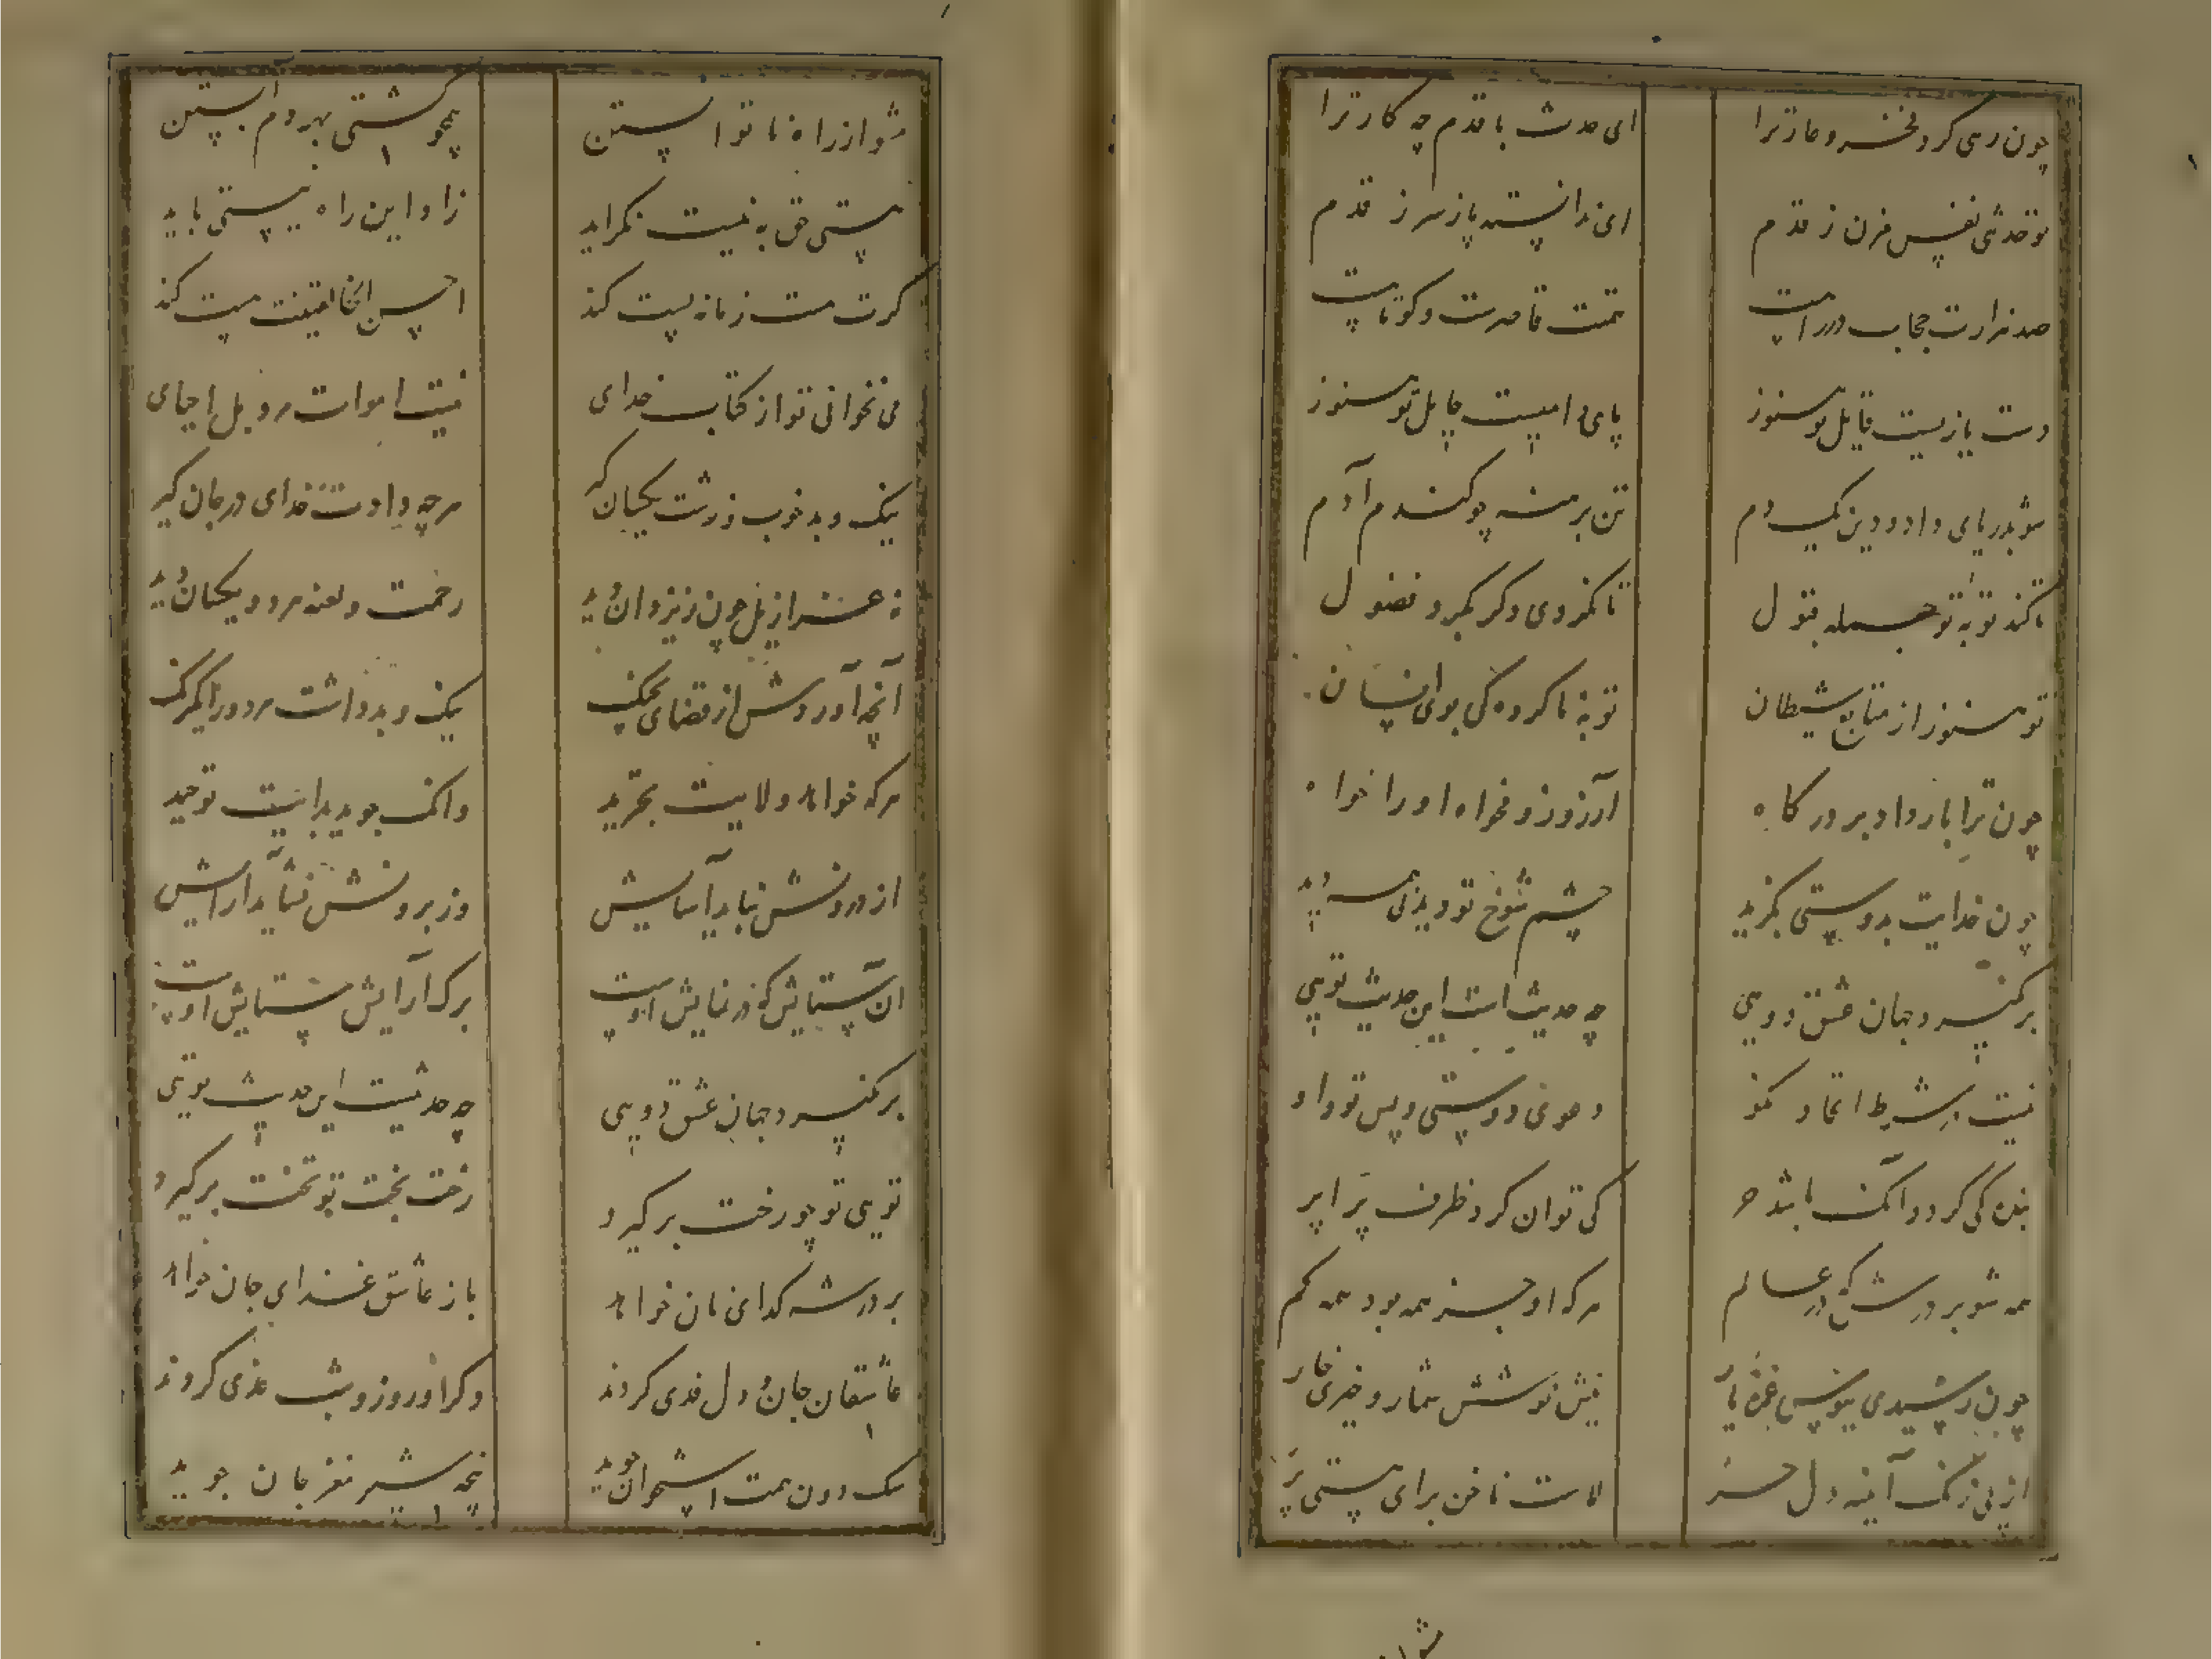 چون رسی کرد فخر و عار ترا ای حدث با قدم چه کار ترا
تو حدثی نفس مزن ز قدم ای ندانسته باز سر ز قدم
صد هزارت حجاب در راهست همتت قاصرست و کوتاهست
دست یازیست قایل تو هنوز پای دامیست حایل تو هنوز
شو بدریای داد و دین یکدم تن برهنه چو گندم آدم
تا کند توبه تو جمله قبول تا نگردی دگر بگرد فضول
تو هنوز از متابع شیطان توبه ناکرده کی بوی انسان
چون ترا بار داد بر درگاه آرزو زو مخواه او را خواه
چون خدایت بدوستی بگزید چشم شوخ تو دیدنی همه دید
برنگیرد جهان عشق دویی چه حدیث است این حدیث تویی
نیست در شرط اتحاد نکو دعوی دوستی و پس تو و او
بنده کی گردد آنک باشد حر کی توان کرد ظرف پر را پر
همه شو بر درش که در عالم هرکه او جز همه بود همه کم
چون رسیدی ببوس غمزه یار نیش نوشش شمار و خیری خار
از پی زنگ آینه دل حر لاست ناخن برای هستی بر
شو از
شو از راه ناتوانستن همچو کشتی بهر دم آبستن
هستی حق به نیست نگراید زاد این راه نیستی باید
گرت هست زمانه پست کند احسن الخالقینت هست کند
می نخوانی تو از کتاب خدای نیست اموات مرد بل احیای
نیک و بد خوب و زشت یکسان گیر هرچه دادت خدای در جان گیر
نه عزازیل چون ز یزدان دید رحمت و لعنه مرد و یکسان دید
آنچه آوردش از قضای نیک نیک و بد داشت مرد و را یکرنگ
هرکه خواهد ولایت تجرید وانک جوید بدایت توحید
از درونش نباید آسایش وز برونش نشاید آرایش
آن ستایش که از نمایش اوست ترک آرایش ستایش اوست
برنگیرد جهان عشق دویی چه حدیثست این حدیث تویی
تویی تو چو رخت برگیرد رخت بخت تو تخت برگیرد
بر در شه گدای نان خواهد باز عاشق غذای جان خواهد
عاشقان جان و دل فدی کردند ذکر او روز و شب غذی کردند
سگ دون همت استخوان جوید پنجه شیر مغز جان جوید